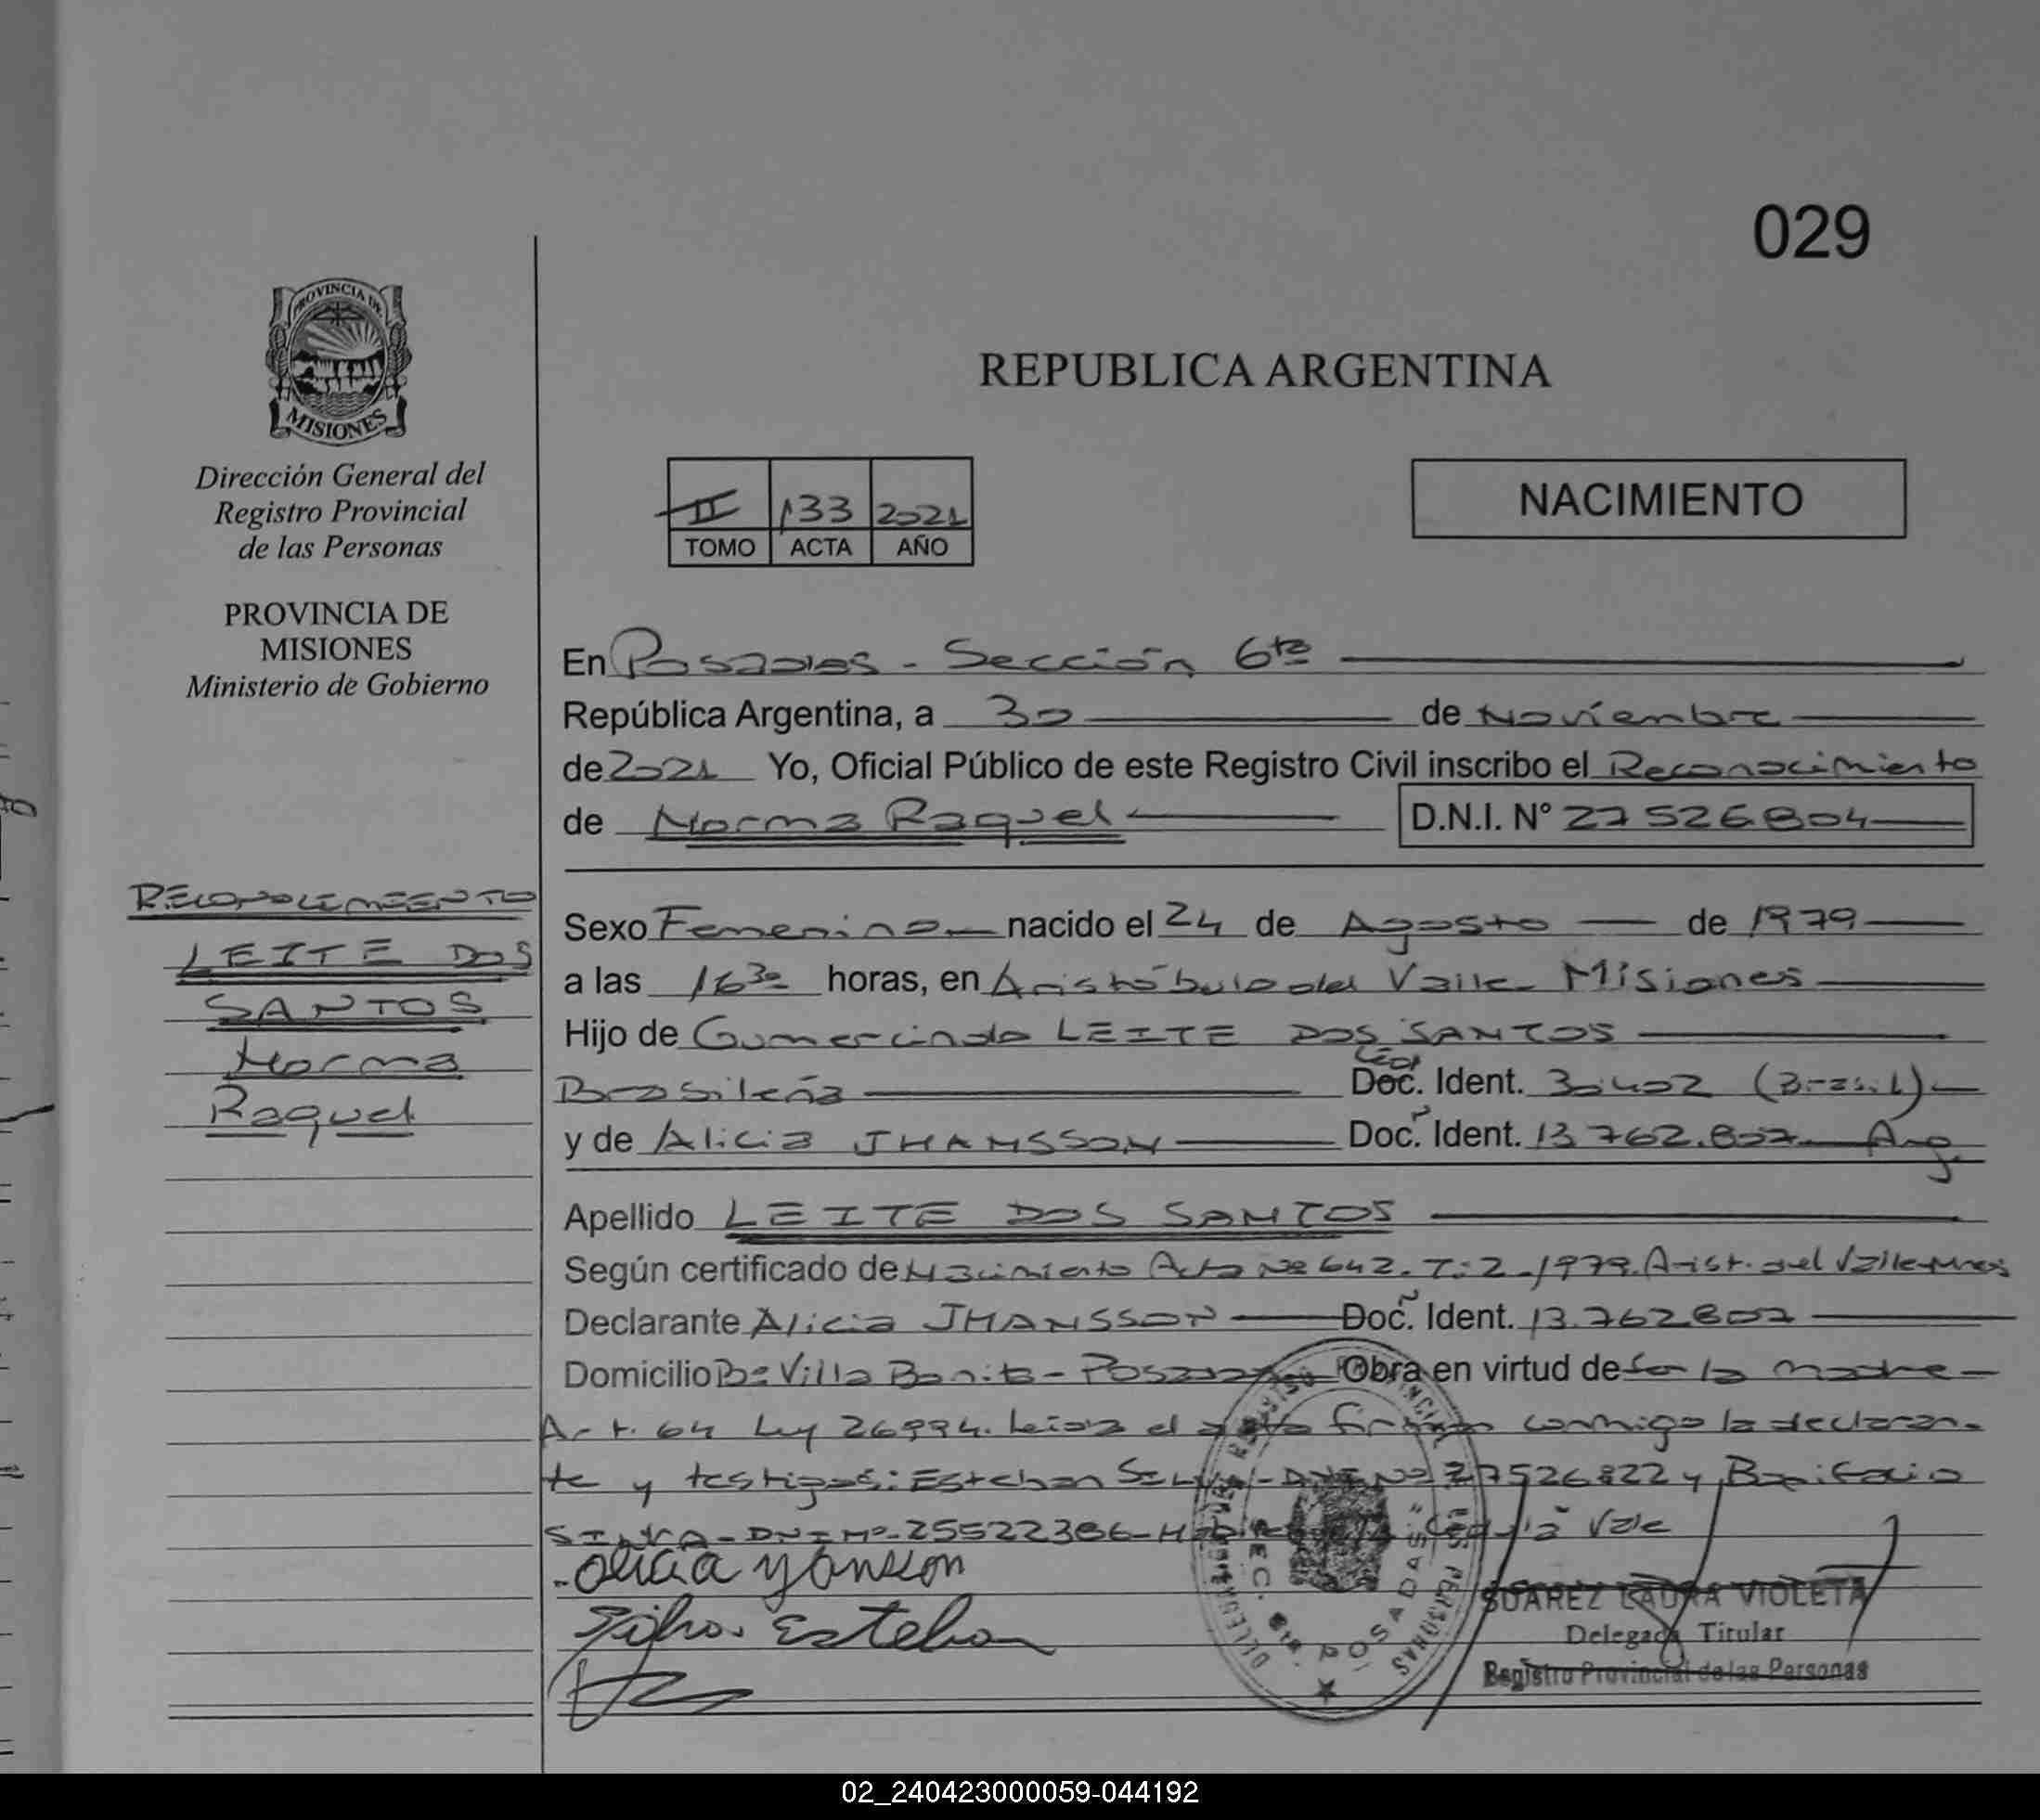 029
PROVINCIA DE
MISIONES
Dirección General del
Registro Provincial
de las Personas
PROVINCIA DE
MISIONES
Ministerio de Gobierno
RECONOCIMIENTO
LEITE DOS
SANTOS
Norma
Raquel
REPUBLICA ARGENTINA
II 133 2021
TOMO ACTA AÑO
NACIMIENTO
En Posadas - Sección 6ta
República Argentina, a 30 de Noviembre
de 2021 Yo, Oficial Público de este Registro Civil inscribo el Reconocimiento
de Norma Raquel D.N.I. N° 27526804
Sexo Femenino nacido el 24 de Agosto de 1979
a las 16 30 horas, en Aristóbulo del Valle Misiones
Hijo de Gumercindo LEITE DOS SANTOS
Brasileña Céd. Doc. Ident. 30.402 (Brasil)
y de Alicia JHANSSON Doc. Ident. 13.762.807 Arg
Apellido LEITE DOS SANTOS
Según certificado de Nacimiento Acta Nº 642. T:2-1979. Arist. del Valle
Declarante Alicia JHANSSON Doc. Ident. 13.762807
Domicilio Bº Villa Bonita - Posadas Obra en virtud de ser la madre
Art. 64 Ley 26994. Leida el acta firman conmigo la declaran-
te y testigos: Esteban SILVA - DNI Nº 27526822 y Bonifacio
SILVA - DNI Nº 25522386 - Vale
Alicia yansson
Silva Esteban
SUAREZ LAURA VIOLETA
Delegada Titular
Registro Provincial de las Personas
SEC. 6ta POSADAS
02_240423000059-044192